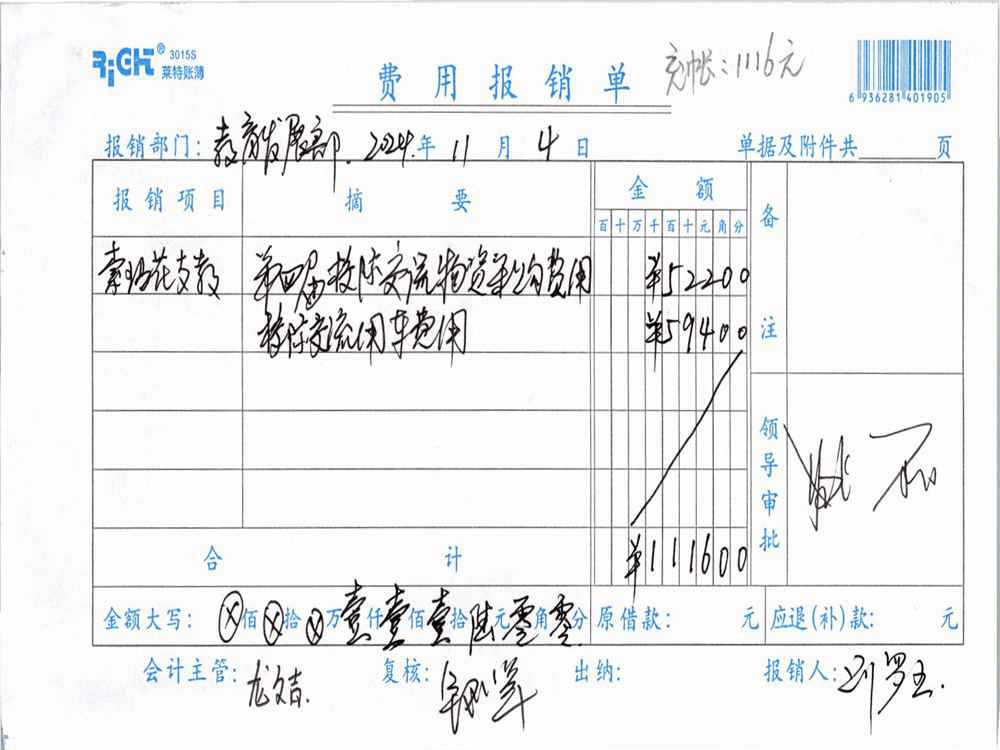 RiCH® 3015S
莱特账簿
费用报销单
充帐:1116元
6 936281 401905
报销部门: 教育发展部. 2024.年 11 月 4 日
单据及附件共 页
报销项目 摘要 金额 备注
百十万千百十元角分
索玛花支教 第四届校际交流物资采购费用 ¥52200
校际交流用车费用 ¥59400
领导审批
合计 ¥111600
金额大写: ⓧ佰ⓧ拾ⓧ万壹仟壹佰壹拾陆元零角零分 原借款: 元 应退(补)款: 元
会计主管: 尤文吉. 复核: 出纳: 报销人: 刘罗玉.